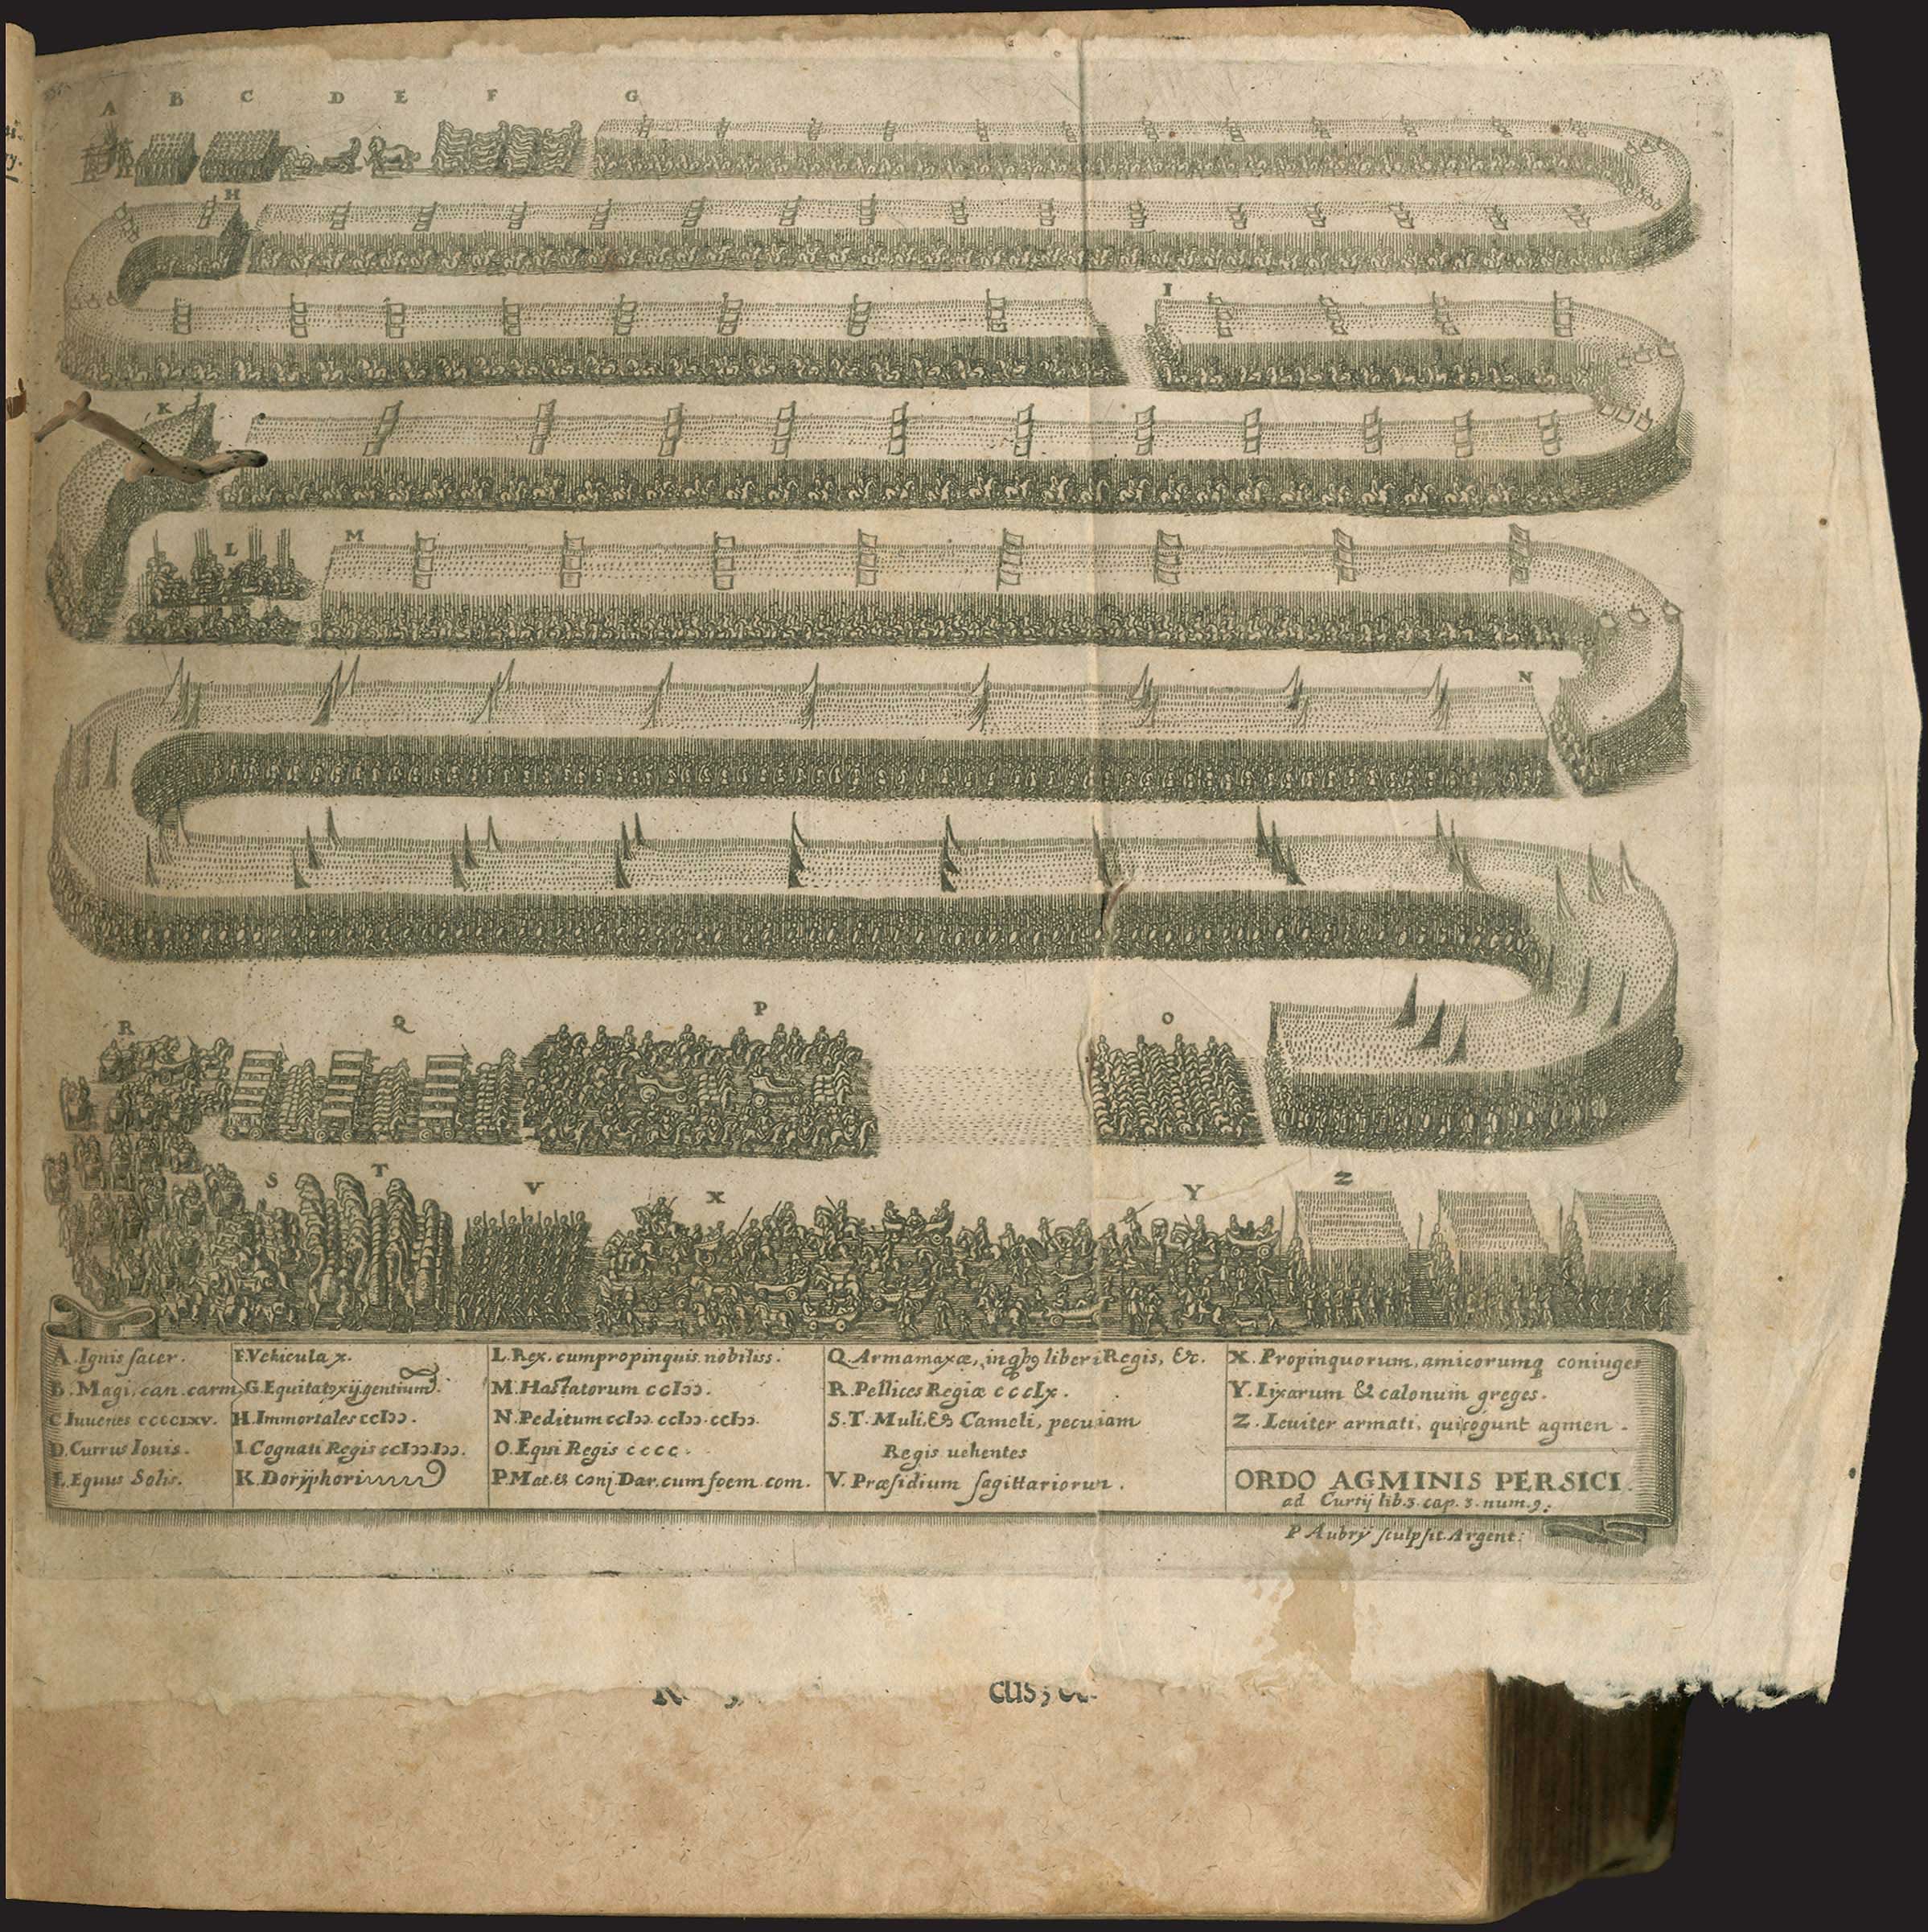 A B C D E F G
H
I
K
L M
N
O
P
Q
R
S T V X Y Z
A. Ignis sacer.
B. Magi. can. carm.
C. Iuuenes ccccLxv.
D. Currus Iouis.
E. Equus Solis.
F. Vehicula x.
G. Equitatꝰ xij. gentium.
H. Immortales ccIↄↄ.
I. Cognati Regis ccIↄↄ.Iↄↄ.
K. Doryphori
L. Rex. cum propinquis nobiliss.
M. Hastatorum ccIↄↄ.
N. Peditum ccIↄↄ. ccIↄↄ. ccIↄↄ.
O. Equi Regis cccc.
P. Mat. & conj. Dar. cum foem. com.
Q. Armamaxæ, in liberi Regis, &c.
R. Pellices Regiæ cccLx.
S. T. Muli, & Cameli, pecuiam
Regis uehentes
V. Præsidium sagittariorum.
X. Propinquorum, amicorumq coniuges
Y. Lixarum & calonum greges.
Z. Leuiter armati, qui cogunt agmen.
ORDO AGMINIS PERSICI.
ad Curtij lib. 3. cap. 3. num. 9.
P Aubrÿ sculpsit. Argent:
cus,